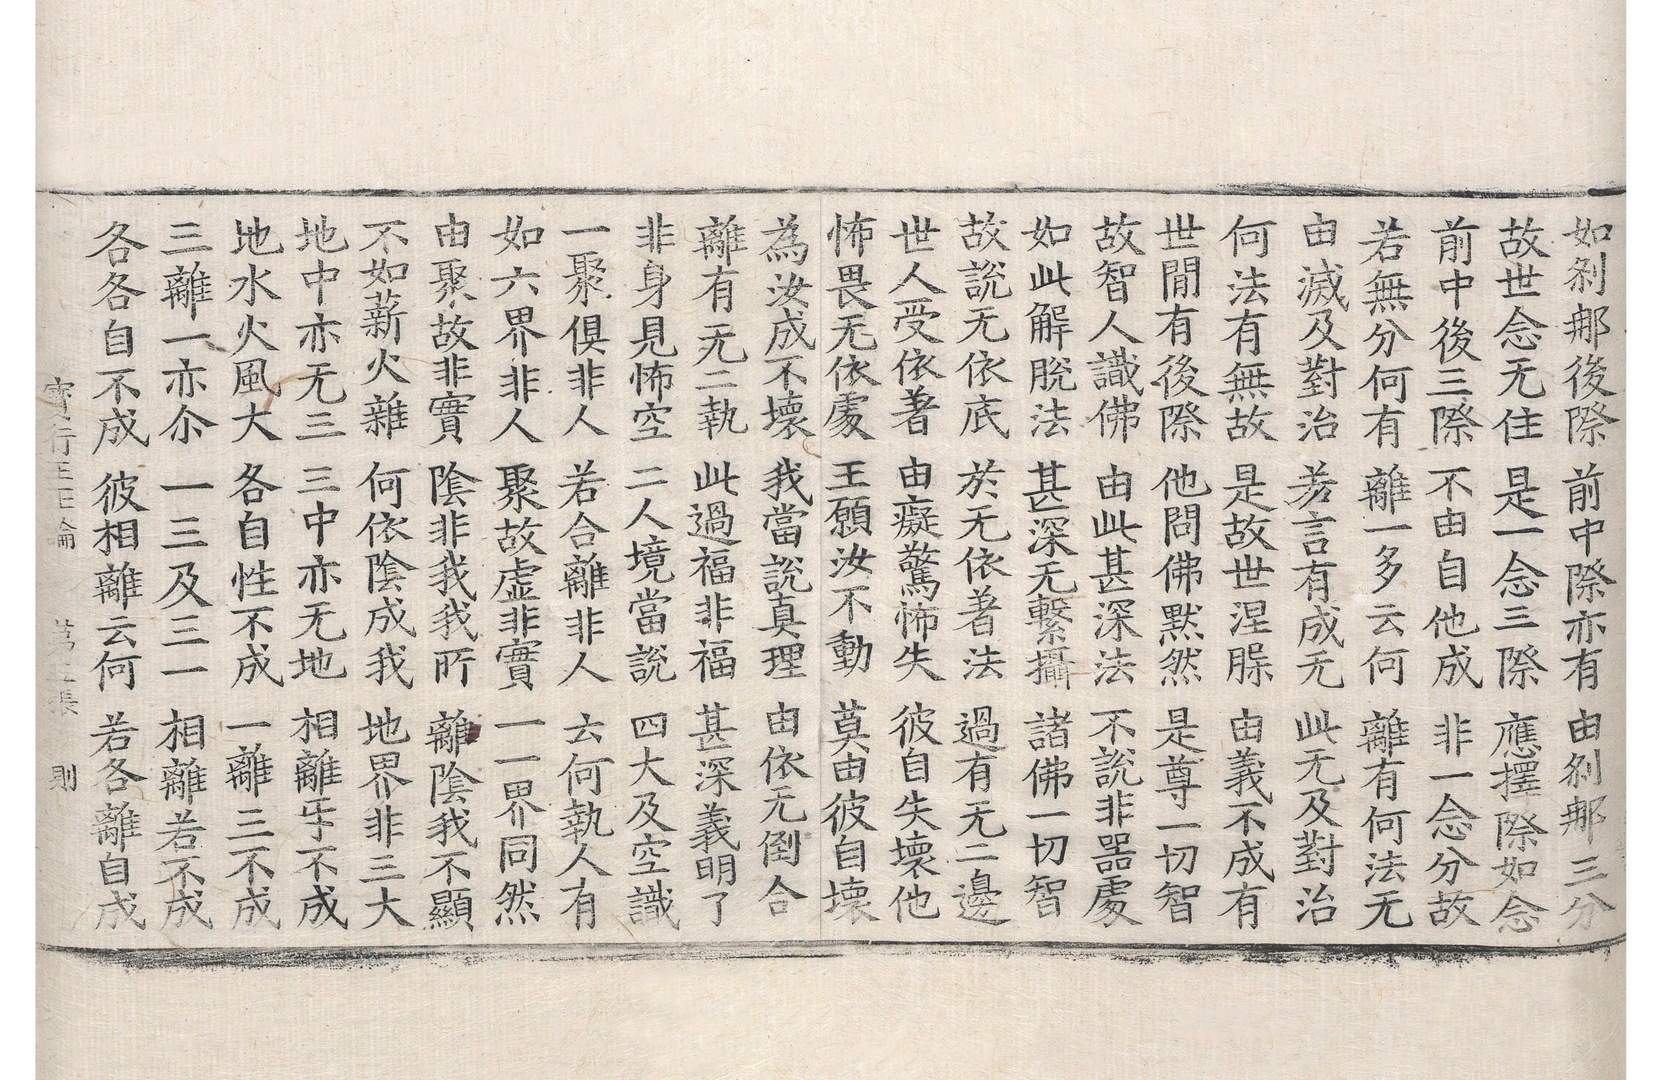 如刹那後際 前中際亦有 由刹那三分
故世念无住 是一念三際 應擇際如念
前中後三際 不由自他成 非一念分故
若無分何有 離一多云何 離有何法无
由滅及對治 若言有成无 此无及對治
何法有無故 是故世涅槃 由義不成有
世間有後際 他問佛默然 是尊一切智
故智人識佛 由此甚深法 不說非器處
如此解脫法 甚深无繫攝 諸佛一切智
故說无依底 於无依著法 過有无二邊
世人受依著 由癡驚怖失 彼自失壞他
怖畏无依處 王願汝不動 莫由彼自壞
為汝成不壞 我當說真理 由依无倒合
離有无二執 此過福非福 甚深義明了
非身見怖空 二人境當說 四大及空識
一聚俱非人 若合離非人 云何執人有
如六界非人 聚故虛非實 一一界同然
由聚故非實 陰非我我所 離陰我不顯
不如薪火雜 何依陰成我 地界非三大
地中亦无三 三中亦无地 相離互不成
地水火風大 各自性不成 一離三不成
三離一亦尒 一三及三一 相離若不成
各各自不成 彼相離云何 若各離自成
寶行王正論 苐 張 則